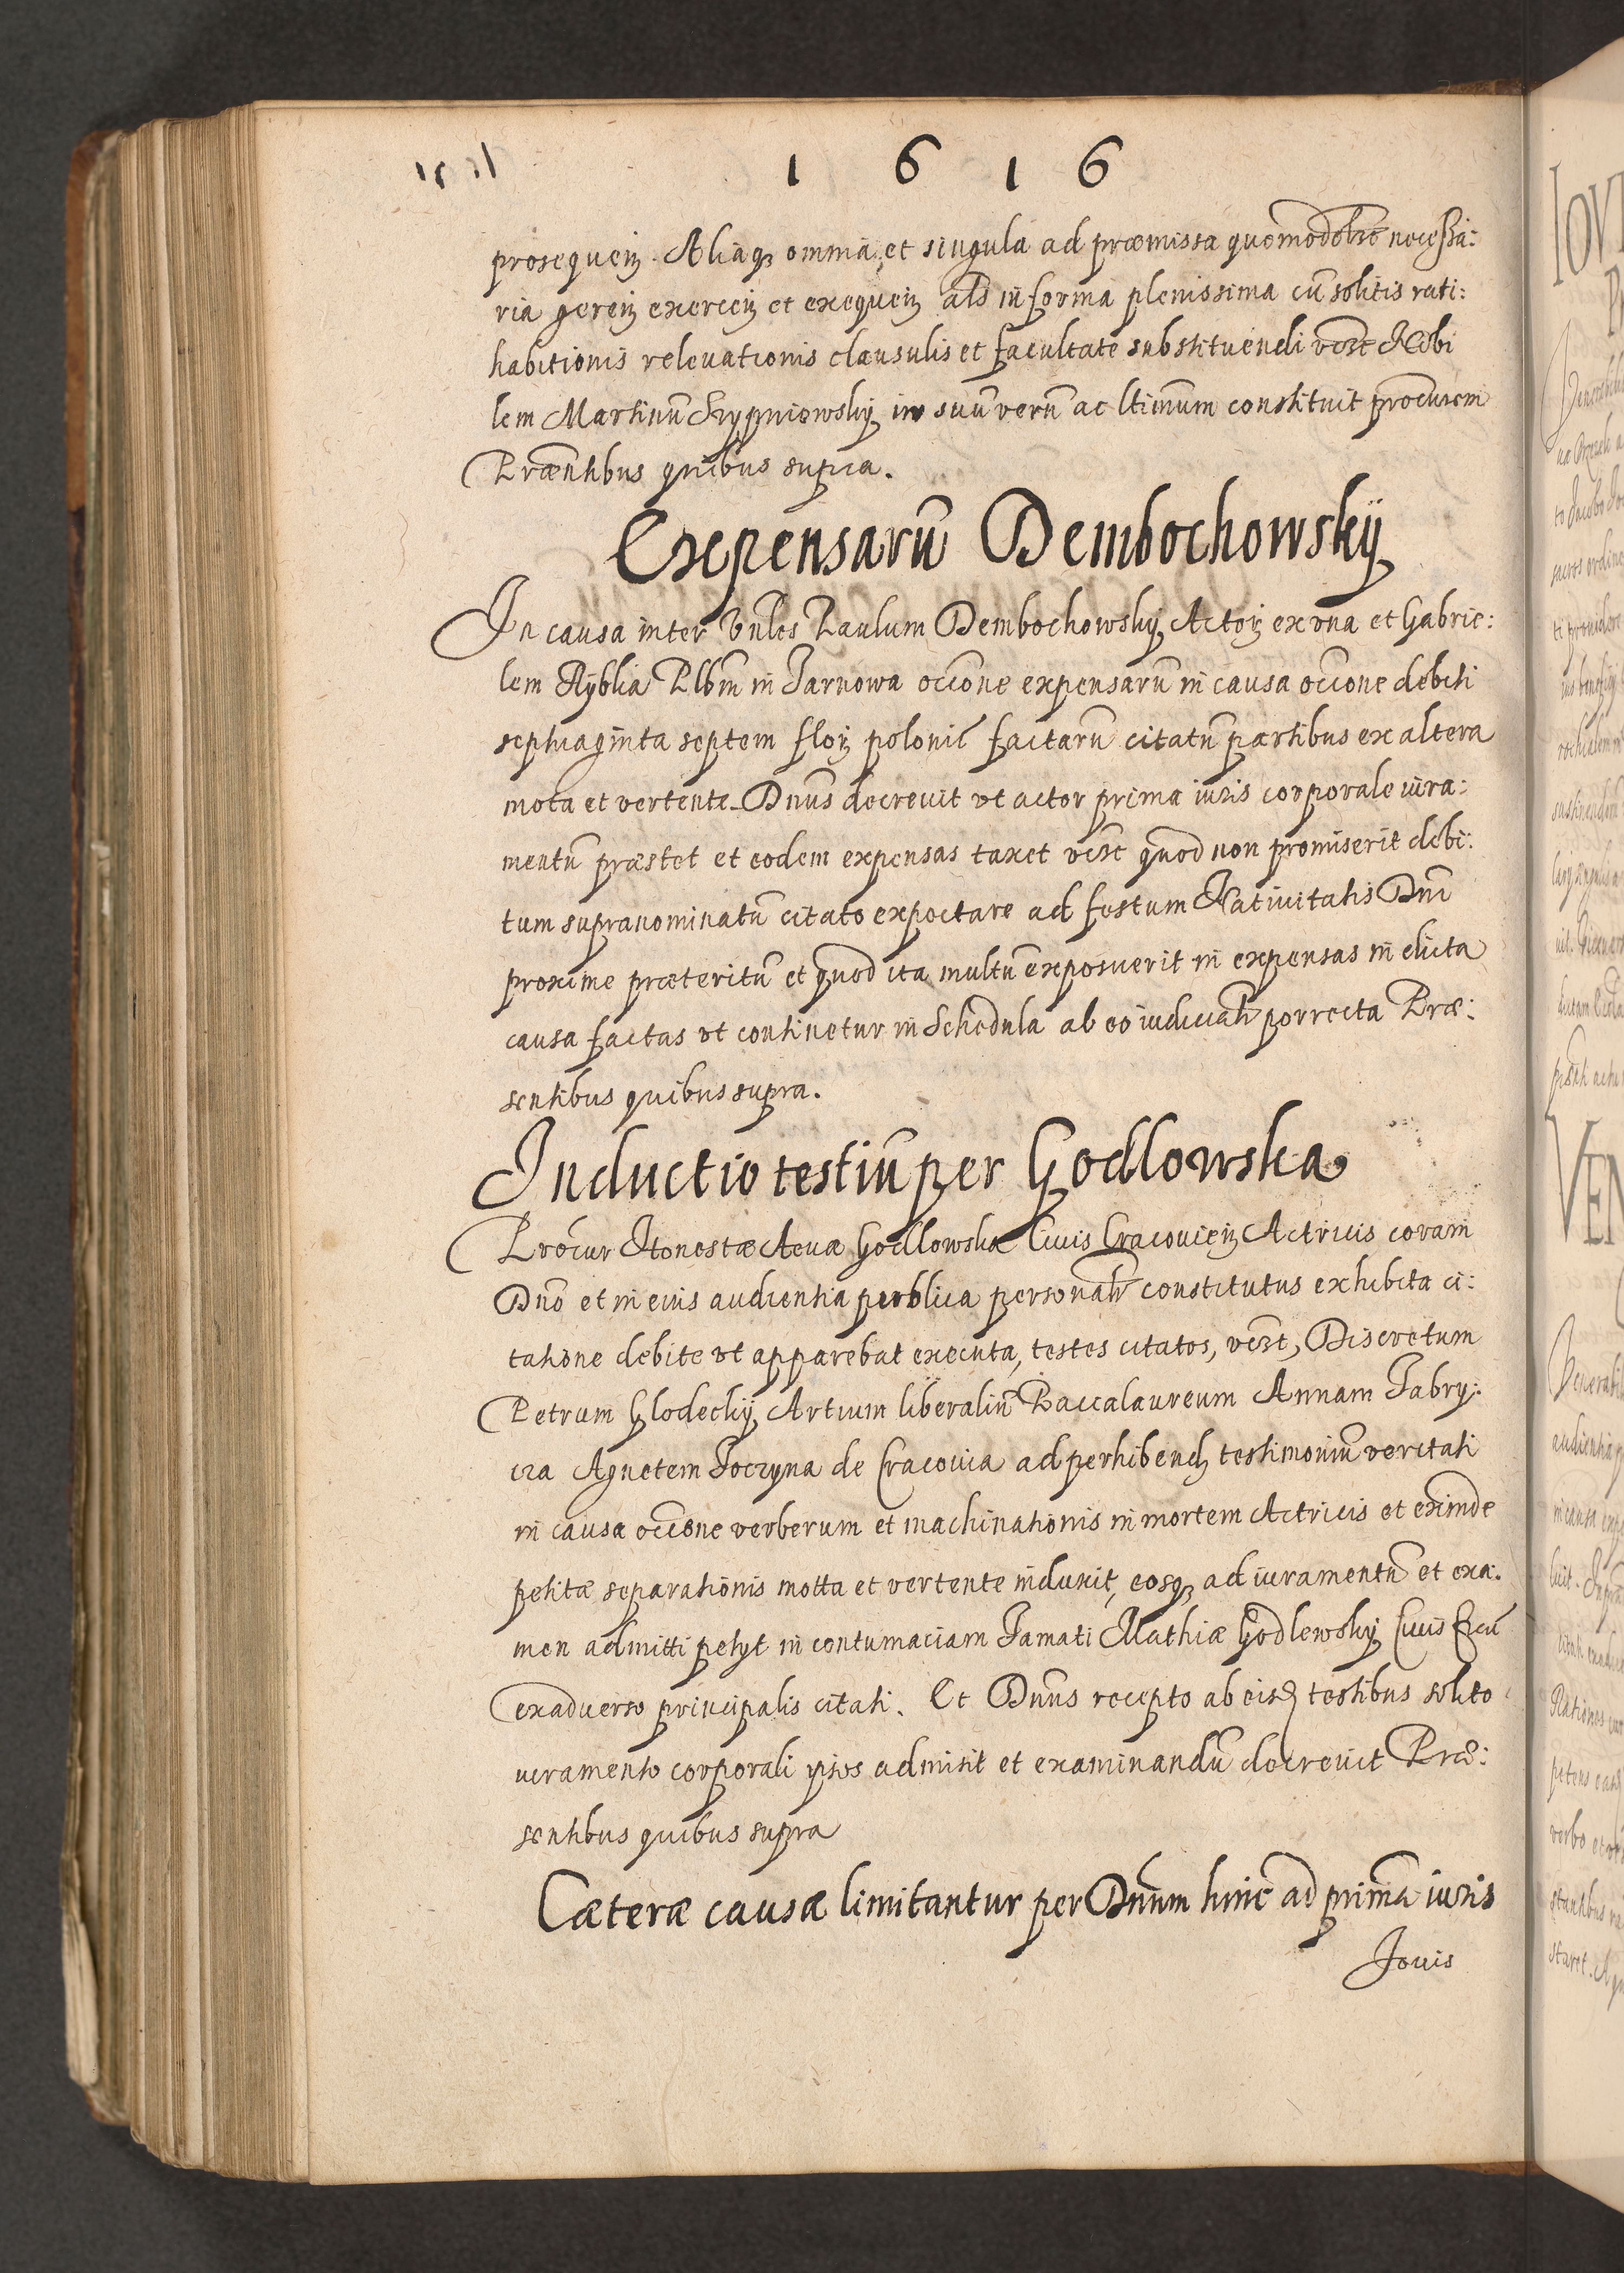 1 6 1 6
prosequeń. Aliaqꝫ omnia et singula ad præmissa quomodolibet necessa:
ria gereń exerceń et exequeń als in forma plenissima cũ solitis rati:
habitionis releuationis clausulis et facultate substituendi vczt Nobi
lem Martinũ Szypniewskÿ in suũ verũ ac ltimum constituit procurem
Præntibus quibus supra.
Expensarũ Dembochowskÿ
In causa inter Vnles Paulum Dembochowskÿ Actoń ex vna et Gabrie:
lem Rÿblia Plbm in Tarnowa occone expensarũ in causa occone debiti
septuaginta septem floń polonic factarũ citatũ partibus ex altera
mota et vertente. Dnus decreuit vt actor prima iuris corporale iura:
mentũ præstet et eodem expensas taxet vczt quod non promiserit debi:
tum supranominatũ citato expectare ad festum Natiuitatis Dni
proxime præteritũ et quod ita multũ exposuerit in expensas in dicta
causa factas vt continetur in Schedula ab eo iudicialr porrecta Præ:
sentibus quibus supra.
Inductio testiũ per Godlowska
Procur Honestæ Aeuæ Godlowska Ciuis Cracouień Actricis coram
Dno et in eius audientia publica personalr constitutus exhibita ci:
tatione debite vt apparebat executa, testes citatos, vczt, Discretum
Petrum Glodeckÿ Artium liberaliũ Baccalaureum Annam Fabry:
cza Agnetem Toczyna de Cracouia ad perhibend testimoniũ veritati
in causa occone verberum et machinationis in mortem Actricis et exinde
petitæ separationis motta et vertente induxit, eosqꝫ ad iuramentũ et exa:
men admitti petyt in contumaciam Famati Mathiæ Godlewskÿ Ciuis Crac
ex aduerso principalis citati. Et Dnus recepto ab eisd testibus solito
iuramento corporali ipsos admisit et examinandũ decreuit Præ:
sentibus quibus supra
Cæteræ causæ limitantur per Dnum hinc ad prima iuris
Jouis